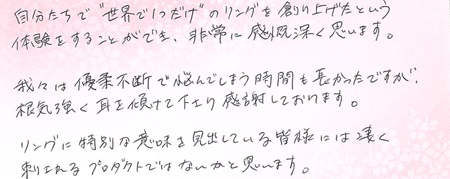 自分たちで"世界で1つだけ"のリングを創り上げたという
体験をすることができ、非常に感慨深く思います。
我々は優柔不断で悩んでしまう時間も長かったですが、
根気強く耳を傾けて下さり感謝しております。
リングに特別な意味を見出している皆様には凄く
刺さるプロダクトではないかと思います。